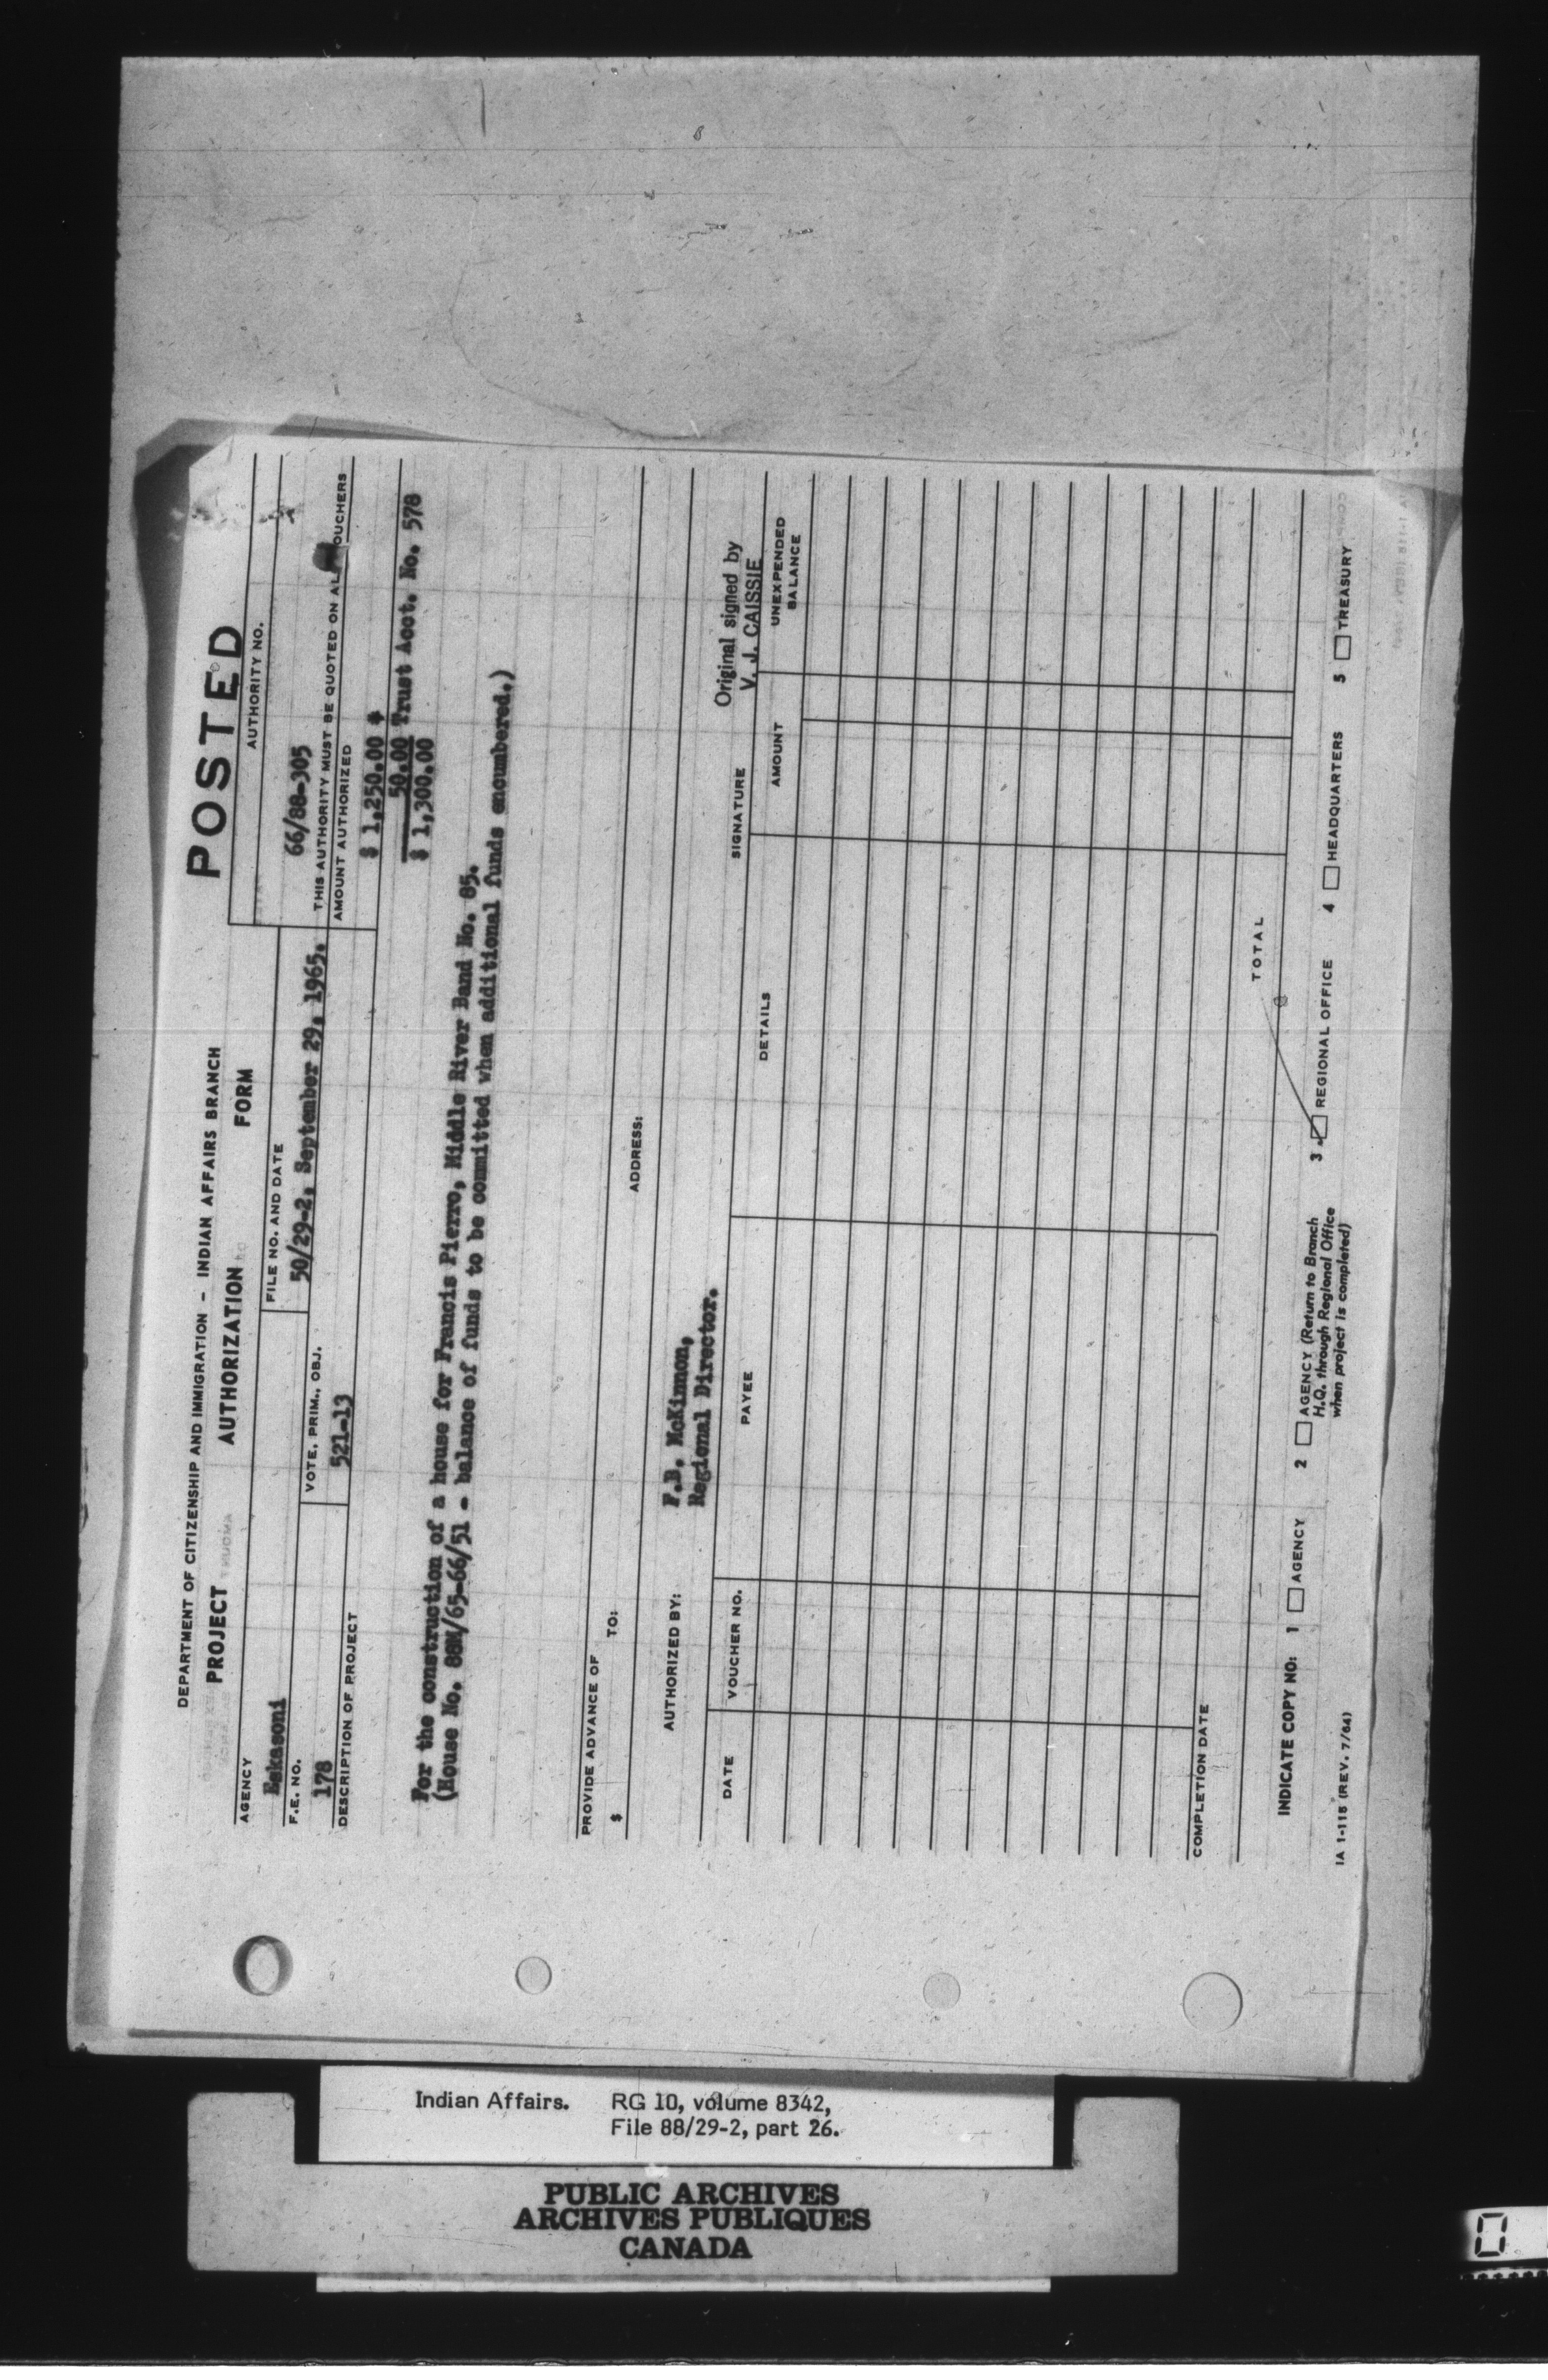 POSTED
DEPARTMENT OF CITIZENSHIP AND IMMIGRATION - INDIAN AFFAIRS BRANCH
PROJECT AUTHORIZATION FORM
AUTHORITY NO.
66/88-305
THIS AUTHORITY MUST BE QUOTED ON ALL VOUCHERS
AGENCY
Eskasoni
FILE NO. AND DATE
50/29-2, September 29, 1965.
F.E. NO.
178
VOTE, PRIM., OBJ.
521-13
AMOUNT AUTHORIZED
$ 1,250.00 +
50.00 Trust Acct. No. 578
$ 1,300.00
DESCRIPTION OF PROJECT
For the construction of a house for Francis Pierro, Middle River Band No. 85.
(House No. 88M/65-66/51 - balance of funds to be committed when additional funds encumbered.)
PROVIDE ADVANCE OF
$ TO: ADDRESS:
AUTHORIZED BY: F.B. McKinnon,
Regional Director.
SIGNATURE
Original signed by
V. J. CAISSIE
DATE VOUCHER NO. PAYEE DETAILS AMOUNT UNEXPENDED BALANCE
COMPLETION DATE
TOTAL
INDICATE COPY NO: 1 AGENCY 2 AGENCY (Return to Branch H.Q. through Regional Office when project is completed) 3 REGIONAL OFFICE 4 HEADQUARTERS 5 TREASURY
IA 1-115 (REV. 7/64)
Indian Affairs. RG 10, volume 8342,
File 88/29-2, part 26.
PUBLIC ARCHIVES
ARCHIVES PUBLIQUES
CANADA
0